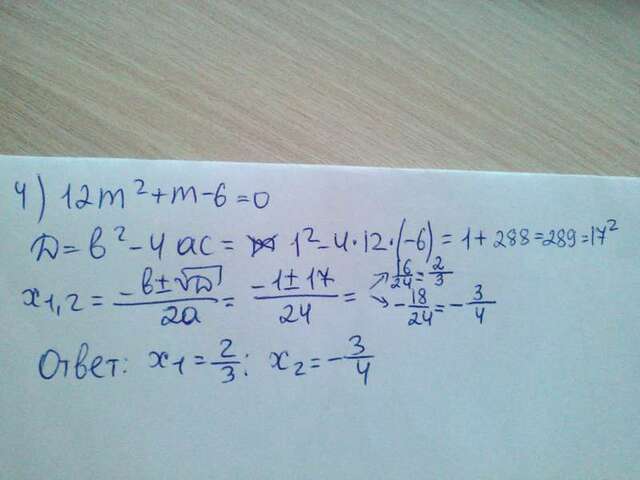 4) 12m² + m - 6 = 0
D = b² - 4ac = 1² - 4·12·(-6) = 1 + 288 = 289 = 17²
x₁,₂ = (-b ± √D)/2a = (-1 ± 17)/24 = ↗ 16/24 = 2/3 ↘ -18/24 = -3/4
Ответ: x₁ = 2/3; x₂ = -3/4